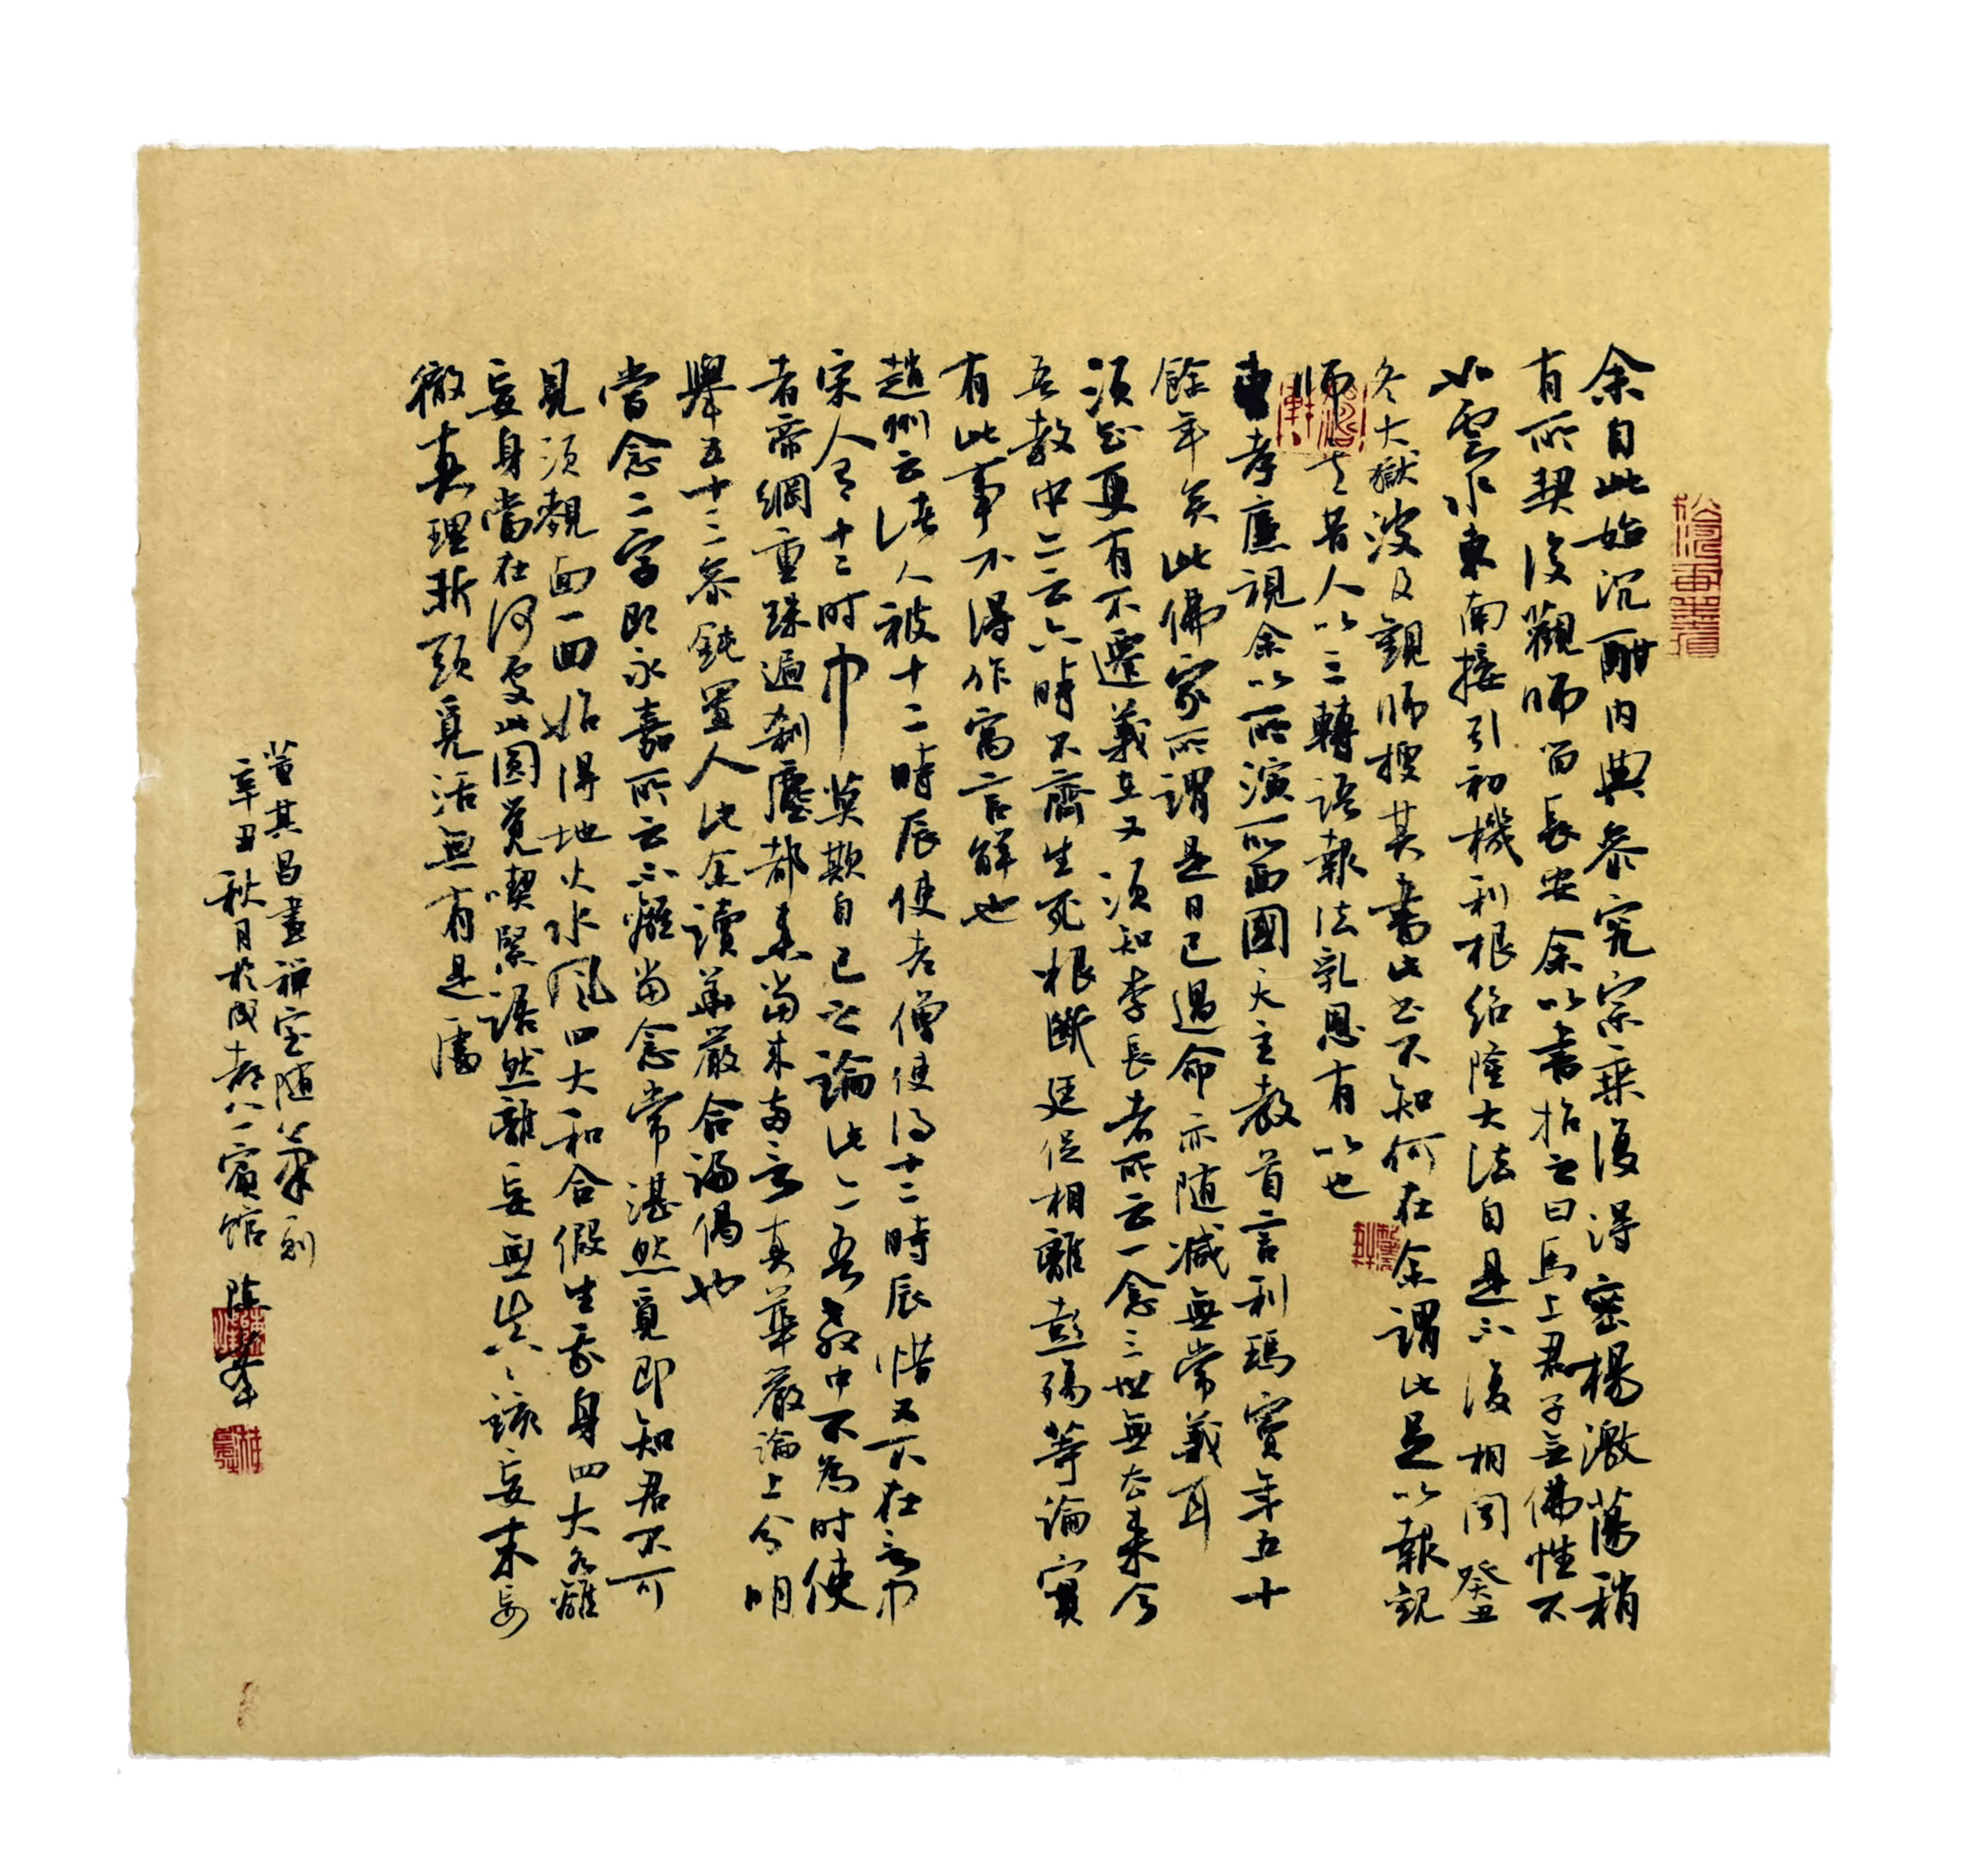 余自此始沉酣内典參究宗乘復得密楊激蕩稍
有所契後觀師留長安余以書招之曰馬上君子無佛性不
如雲水東南接引初機利根紹隆大法自是不復相聞癸丑
冬大獄波及觀師搜其書此書不知何在余謂此足以報觀
師之昔人以三轉語報法乳恩有以也
曹孝廉視余以所演西國天主教首言利瑪竇年五十
餘年矣此佛家所謂是日已過命亦随減無常義耳
須知更有不遷義在又須知李長者所云一念三世無去来今
吾教中亦云六時不齊生死根斷延促相離彭殤等論實
有此事不得作寓言解也
趙州云諸人被十二時辰使老僧使得十二時辰惜又不在言巾
宋人有十二时巾莫欺自己之論此亦吾教中不為时使
者帝網重珠遍刹塵都来當念兩言真華嚴論上分明
舉五十三參鈍置人此余讀華嚴合論偈也
當念二字即永嘉所云不離當念常湛然覓即知君不可
見須覿面一回始得地火水風四大和合假生我身四大各離
妄身當在何處此圓覺喫緊語然離妄無真真該妄末妄
徹真理斬頭覓活無有是處
董其昌畫禪室随筆則
辛丑秋月於成都八一賓馆 陳